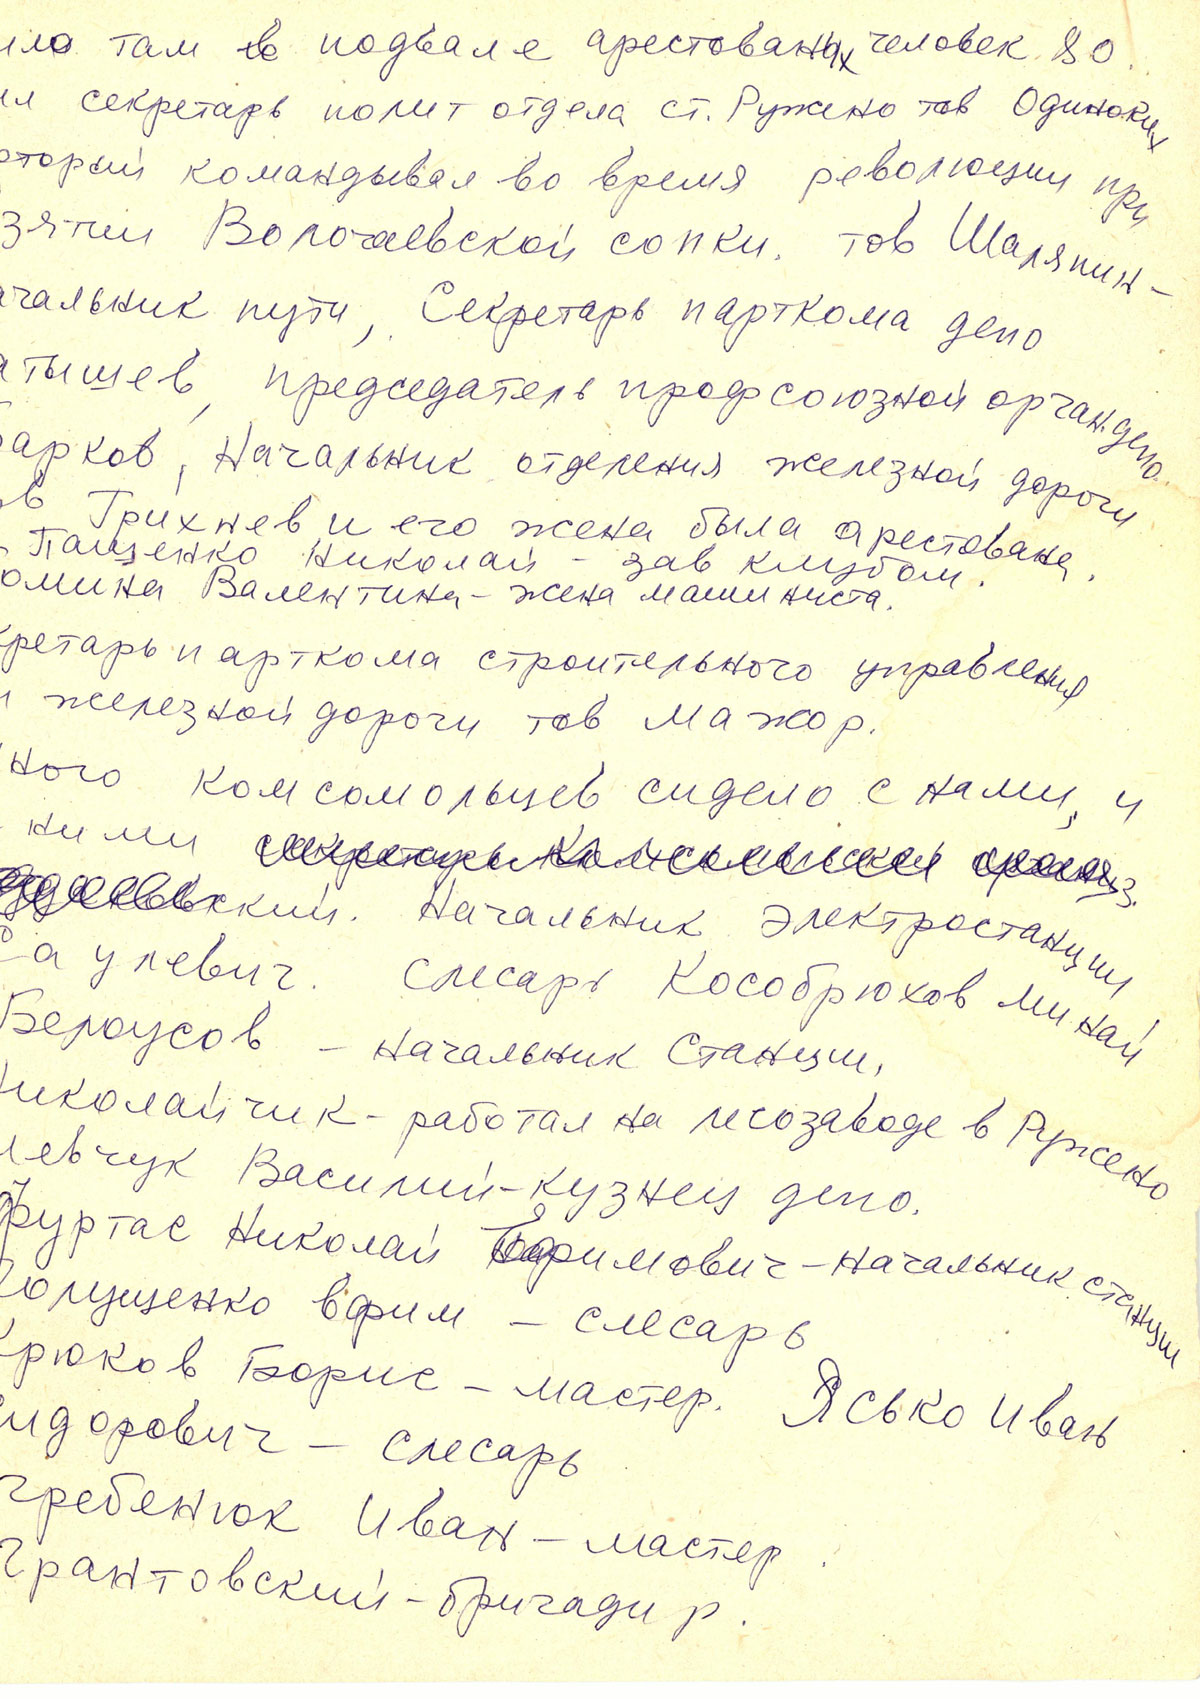 ыло там в подвале арестованых человек 80.
ил секретарь полит отдела ст. Ружено тов Одиноких
оторый командывал во время революции при
зятии Волочаевской сопки. тов Шаляпин –
ачальник пути, Секретарь парткома депо
атышев, председатель профсоюзной орган. депо.
арков, Начальник отделения железной дороги
ов Грихнев и его жена была арестована.
Пащенко Николай – зав клубом.
омина Валентина – жена машиниста.
кретарь парткома строительного управления
и железной дороги тов Мажор.
ного комсомольцев сидело с нами, и
ними секретарь комсомольской организ.
ский. Начальник электростанции
Саулевич. слесарь Кособрюхов Минай
Белоусов – начальник станции,
Николайчик – работал на лесозаводе в Ружено
левчук Василий – кузнец депо.
Фуртас Николай Ефимович – начальник станции
олущенко Ефим – слесарь
Крюков Борис – мастер. Ясько Иван
Сидорович – слесарь
Гребенюк Иван – мастер.
Грантовский – бригадир.